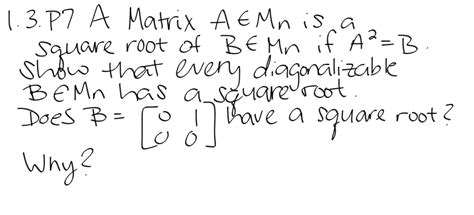 1.3.P7 A Matrix A∈Mn is a
square root of B∈Mn if A²=B.
Show that every diagonalizable
B∈Mn has a square root.
Does B = [0 1
0 0] have a square root?
Why?